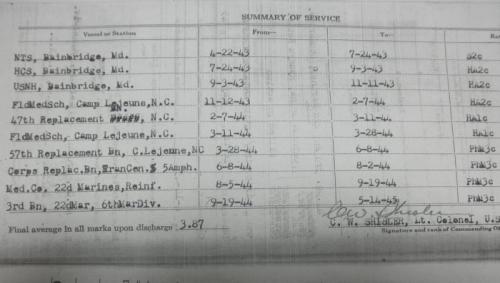 SUMMARY OF SERVICE
Vessel or Station From— To— Ra
NTS, Bainbridge, Md. 4-22-43 7-24-43 S2c
HCS, Bainbridge, Md. 7-24-43 9-3-43 HA2c
USNH, Bainbridge, Md. 9-3-43 11-11-43 HA2c
FldMedSch, Camp Lejeune,N.C. 11-12-43 2-7-44 HA2c
Bn.
47th Replacement N.C. 2-7-44 3-11-44 HA1c
FldMedSch, Camp Lejeune,N.C. 3-11-44 3-28-44 HA1c
57th Replacement Bn, C.Lejeune,NC 3-28-44 6-8-44 PhM3c
Corps Replac.Bn,TranCen.5 5Amph. 6-8-44 8-2-44 PhM3c
Med.Co. 22d Marines,Reinf. 8-5-44 9-19-44 PhM3c
3rd Bn, 22dMar, 6thMarDiv. 9-19-44 5-14-45 PhM3c
C W Shisler
Final average in all marks upon discharge 3.87 C. W. SHISLER, Lt. Colonel, U.S
Signature and rank of Commanding Of